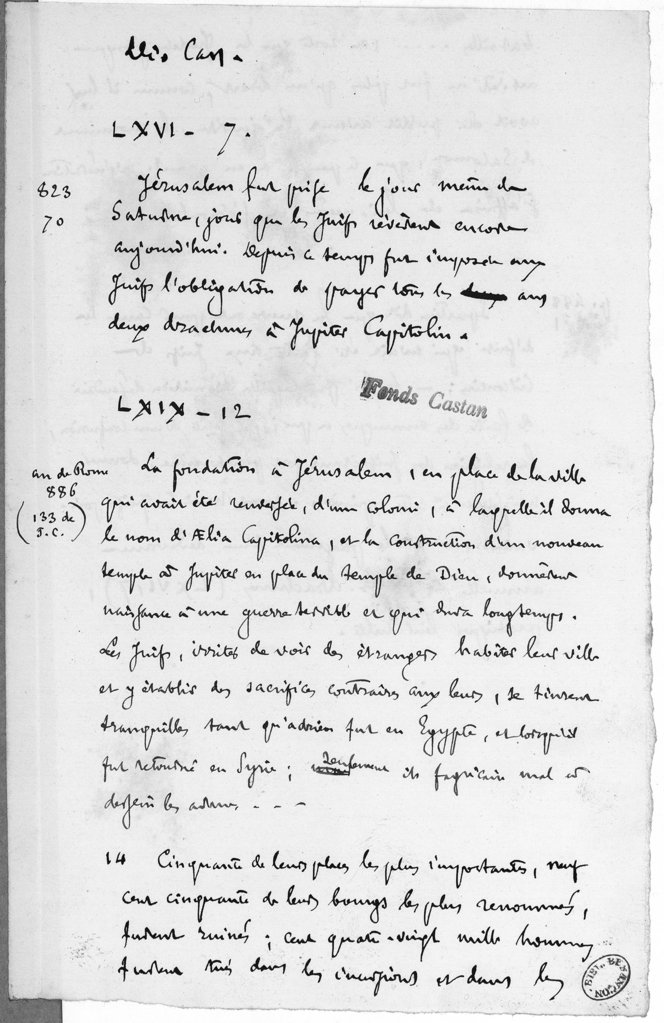 Dio Cass.
LXVI - 7.
823
70
Jérusalem fut prise le jour même de
Saturne, jour que les Juifs révèrent encore
aujourd'hui. Depuis ce temps fut imposée aux
Juifs l'obligation de payer tous les ans
deux drachmes à Jupiter Capitolin.
Fonds Castan
LXIX - 12
an de Rome
886
(133 de
J.C.)
La fondation à Jérusalem, en place de la ville
qui avait été renversée, d'une colonie, à laquelle il donna
le nom d'Ælia Capitolina, et la construction d'un nouveau
temple à Jupiter en place du temple de Dieu, donnèrent
naissance à une guerre terrible et qui dura longtemps.
Les Juifs, irrités de voir des étrangers habiter leur ville
et y établir des sacrifices contraires aux leurs, se tinrent
tranquilles tant qu'adrien fut en Égypte, et lorsqu'il
fut retourné en Syrie; seulement ils fabricaient mal à
dessein les armes - - -
14 Cinquante de leurs places les plus importantes, neuf
cent cinquante de leurs bourgs les plus renommés,
furent ruinés; cent quatre-vingt mille hommes
furent tués dans les incursions et dans les
BIBL. BESANÇON